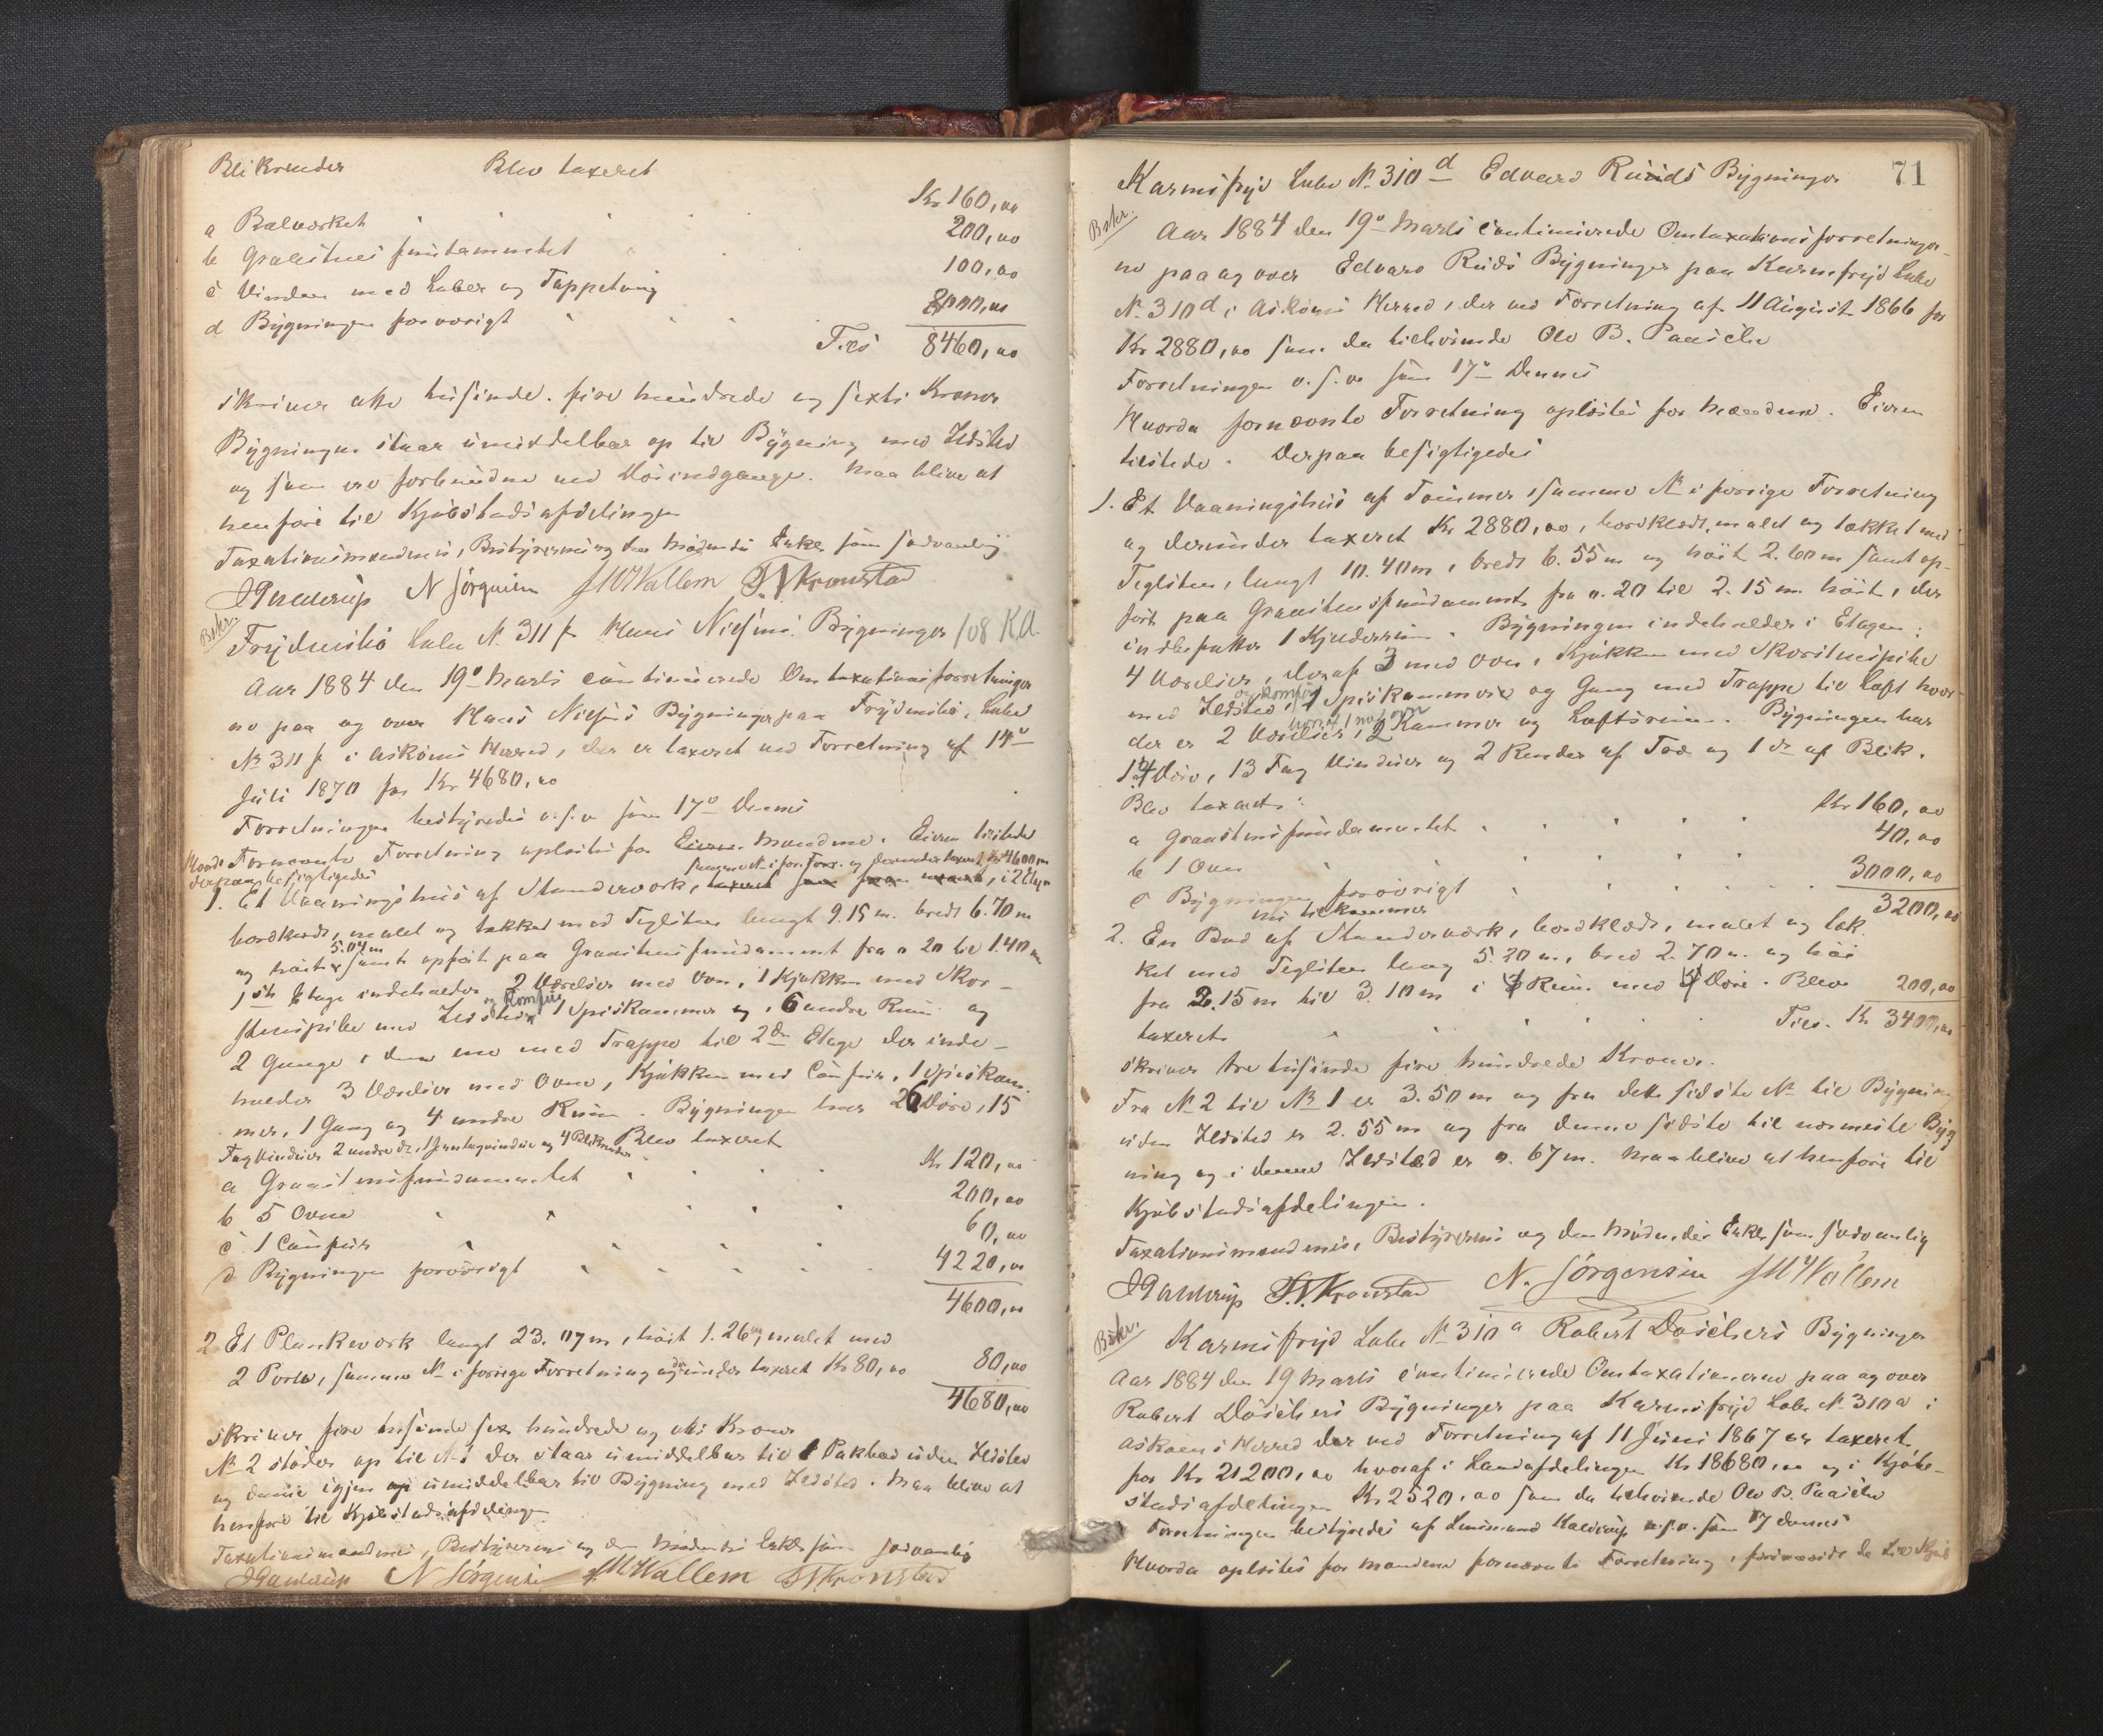 Blikrender Blev taxeret
a Bolværket Kr 160,00
b Graastensfundamentet 200,00
c Vinduer med Luker og Tappetning 100,00
d Bygningen forøvrigt 8000,00
Tils 8460,00
skriver otte tusinde fire hundrede og sexti Kroner
Bygningen staar umiddelbar op til Bygning med Ildsted
og som ere forbundne med Dørindgange. Maa blive at
henføre til Kjøbstadsafdelingen
Taxationsmændenes, Bestyrerens og den mødendes Enke som sædvanlig
N Jørgensen M Wallem Kronstad
Bskr. Frydensbø Lube No 311 f Hans Nielsens Bygninger 108 K.A
Aar 1884 den 19de Marts continuerede Omtaxationsforretninger
ne paa og over Hans Nielsens Bygninger paa Frydensbø, Lube
No 311 f i Askøens Herred, der er taxeret ved Forretning af 14de
Juli 1870 for Kr 4680,00
Forretningen bestyredes o.s.v. som 17de Dennes
Hvorda Fornævnte Forretning oplæstes for Eieren Mændene. Eieren tilstede
derpaa besigtigedes samme No i for. Forr. og derunder taxeret Kr 4600,00
1. Et Vaaningshus af Standerværk, i 2 Etager
bordklædt, malet og tækket med Teglsten langt 9.15 m. bredt 6.70 m
og høit 5.04 m samt opført paa Graastensfundament fra 0.20 til 1.40 m
1ste Etage indeholder 2 Værelser med Ovn, 1 Kjøkken med Skor-
stenspibe med Ildsted og Komfur 1 Spiskammer og 6 andre Rum og
2 Gange i den ene med Trappe til 2den Etage der inde-
holder 3 Værelser med Ovne, Kjøkken med Comfur, 1 Spiskam-
mer, 1 Gang og 4 andre Rum. Bygningen har 26 Døre, 15
Fag Vinduer 2 andre do, 1 og 4 Blikrender Blev taxeret
a Graastensfundamentet Kr 120,00
b 5 Ovne 200,00
c 1 Comfur 60,00
d Bygningen forøvrigt 4220,00
4600,00
2 Et Plankeværk langt 23.07 m, høit 1.26 m, malet med
2 Porte, samme No i forrige Forretning og derunder taxeret Kr 80,00 80,00
4680,00
skriver fire tusinde sex hundrede og otti Kroner
No 2 støder op til No 1 der staar umiddelbar til 1 Pakbod uden Ildsted
og denne igjen umiddelbar til Bygning med Ildsted. Maa blive at
henføre til Kjøbstadsafdelingen
Taxationsmændenes, Bestyrerens og den mødendes Enke som sædvanlig
N Jørgensen M Wallem Kronstad
71
Karmsfryd Lube No 310 d Edvard Ruuds Bygninger
Bskr. Aar 1884 den 19de Marts continuerede Omtaxationsforretninger-
ne paa og over Edvard Ruds Bygninger paa Karmsfryd Lube
No 310 d i Askøens Herred, der ved Forretning af 11 August 1866 for
Kr 2880,00 som da tilhørende Ole B. Paasche
Forretningen o.s.v. som 17de Dennes
Hvorda fornævnte Forretning oplæstes for Mændene. Eieren
tilstede. Derpaa besigtigedes
1. Et Vaaningshus af Tømmer, samme No i forrige Forretning
og derunder taxeret Kr 2880,00, bordklædt, malet og tækket med
Teglsten, langt 10.40 m, bredt 6.55 m og høit 2.60 m samt op-
ført paa Graastensfundament fra 0.20 til 2.15 m høit, der
indbefatter 1 Kjælderrum. Bygningen indeholder i Etagen:
4 Værelser, deraf 3 med Ovn, Kjøkken med Skorstenspibe
med Ildsted, og komfur 1 Spiskammer og Gang med Trappe til Loft hvor
der er 2 Værelser, hvoraf 1 med ovn 2 Kammer og Loftsrum. Bygningen har
14 Døre, 13 Fag Vinduer og 2 Render af Træ og 1 do af Blik.
Blev taxeret:
a Graastensfundamentet Kr 160,00
b 1 Ovn 40,00
c Bygningen forøvrigt 3000,00
3200,00
ny tilkommer
2. En Bod af Standerværk, bordklædt, malet og tæk
ket med Teglsten lang 5.20 m, bred 2.70 m. og høi
fra 2.15 m til 3.10 m i Rum med Døre. Blev
taxeret 200,00
Tils. Kr 3400,00
skriver tre tusinde fire hundrede Kroner.
Fra No 2 til No 1 er 3.50 m og fra dette sidste No til Bygning
uden Ildsted er 2.55 m og fra denne sidste til nærmeste Byg
ning og i denne Ildsted er 0.67 m. Maa blive at henføre til
Kjøbstadsafdelingen.
Taxationsmændenes, Bestyrerens og den mødendes Enke som sædvanlig
Kronstad N. Jørgensen M Wallem
Bskr. Karmsfryd Lube No 310 a Robert Døschers Bygninger
Aar 1884 den 19 Marts continuerede Omtaxationerne paa og over
Robert Døschers Bygninger paa Karmsfryd Lube No 310 a i
Askøens Herred der ved Forretning af 11 Juni 1867 er taxeret
for Kr 21200,00 hvoraf i Landafdelingen Kr 18680,00 og i Kjøb-
stadsafdelingen Kr 2520,00 som da tilhørende Ole B. Paasche
Forretningen bestyredes af Lensmand o.s.v. som 17 dennes
Hvorda oplæstes for mændene fornævnte Forretning,